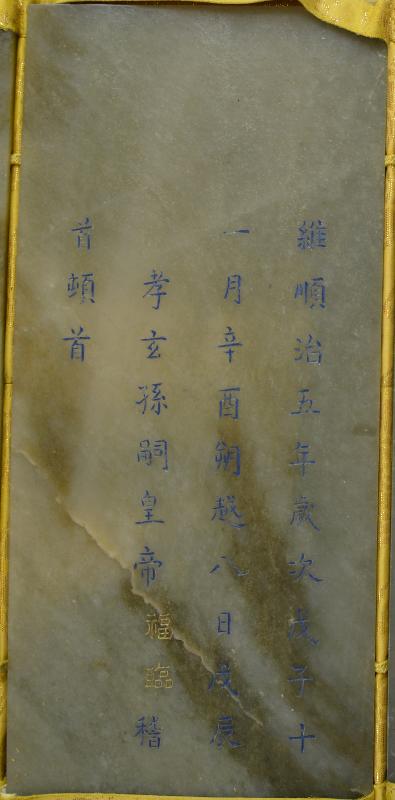 維順治五年歲次戊子十
一月辛酉朔越八日戊辰
孝玄孫嗣皇帝福臨稽
首頓首